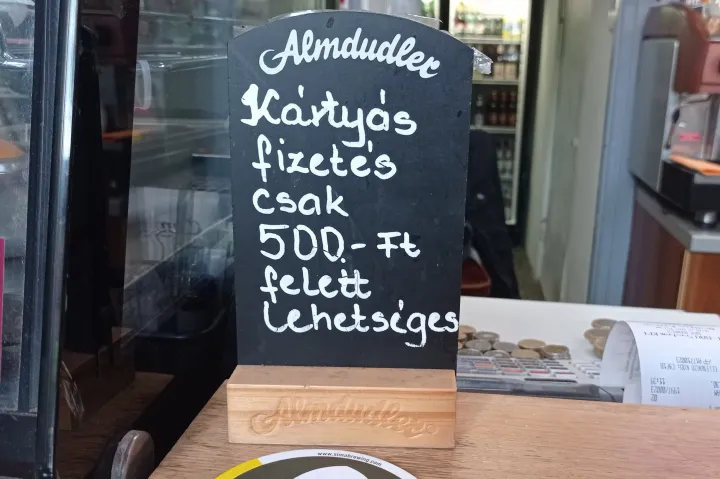 Almdudler
Kártyás
fizetés
csak
500.- Ft
felett
lehetséges
Almdudler